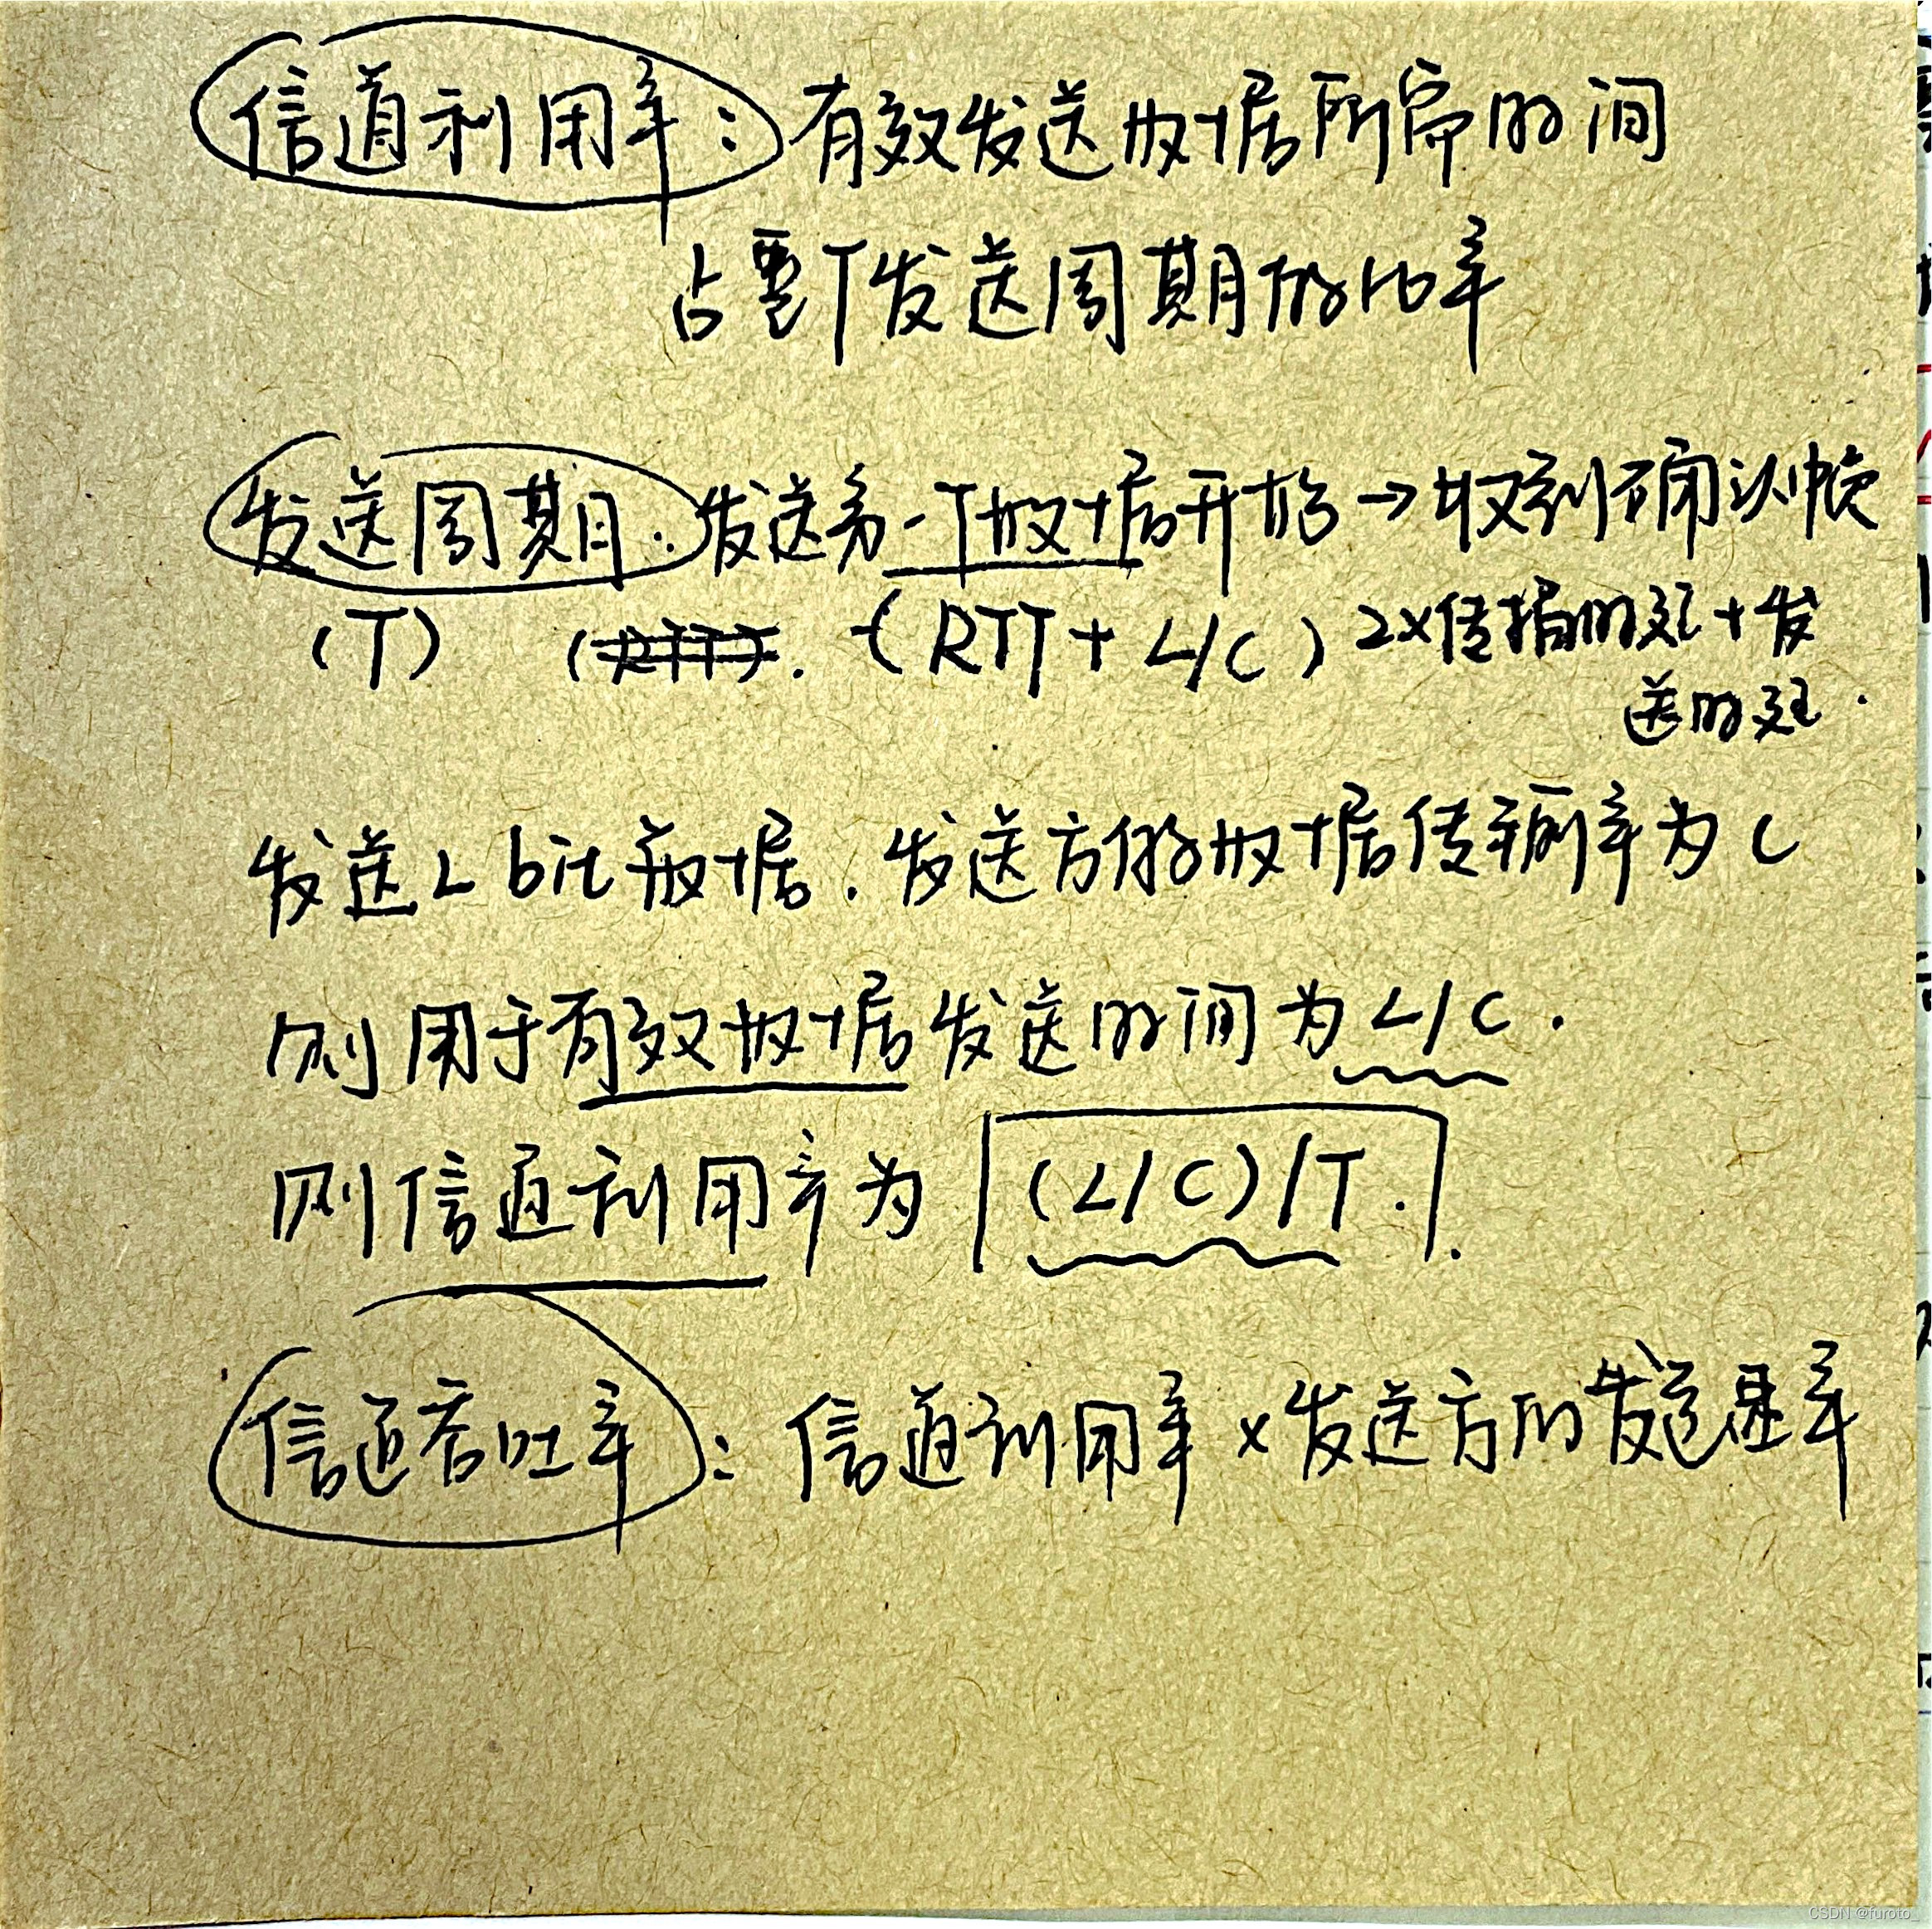 信道利用率：有效发送数据所需时间
占整个发送周期的比率
发送周期：发送第一个数据开始→收到确认帧
(T) (RTT). (RTT + L/C) 2×传播时延+发
送时延.
发送L bit数据.发送方的数据传输率为C
则用于有效数据发送时间为L/C.
则信道利用率为 (L/C)/T.
信道吞吐率：信道利用率×发送方的发送速率
CSDN @furoto